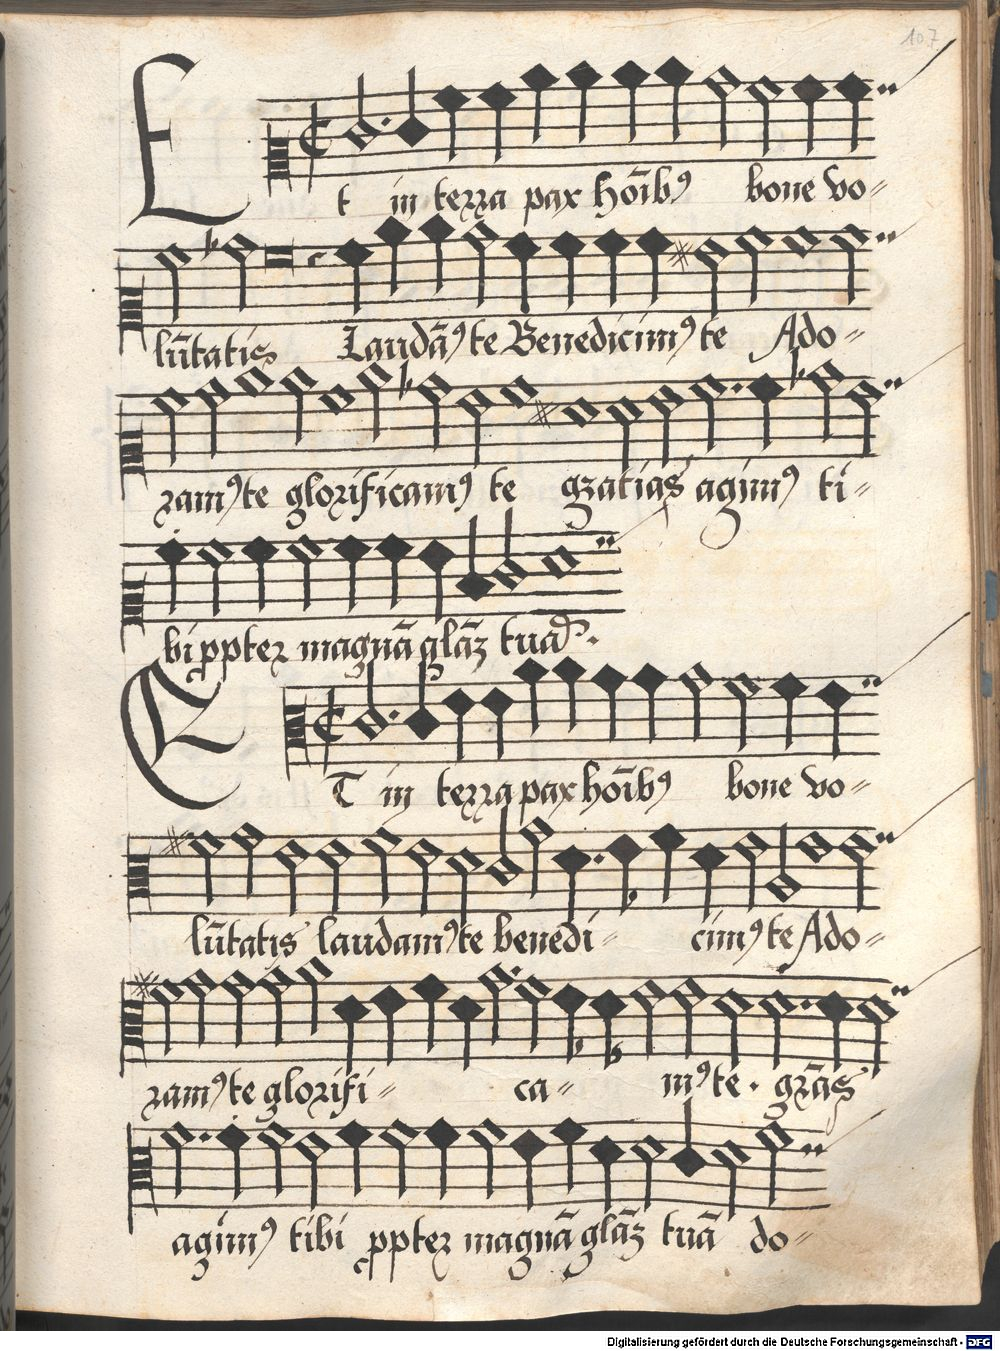 107
Et in terra pax hoībꝰ bone vo⸗
lūtatis Laudāꝰ te Benedicimꝰ te Ado⸗
ramꝰ te glorificamꝰ te gratias agimꝰ ti⸗
bi ꝓpter magnā glāȝ tuā.
ET in terra pax hoībꝰ bone vo⸗
lūtatis laudamꝰ te benedi⸗ cimꝰ te Ado⸗
ramꝰ te glorifi⸗ ca⸗ mꝰ te. grās
agimꝰ tibi ꝓpter magnā glāȝ tuā do⸗
Digitalisierung gefördert durch die Deutsche Forschungsgemeinschaft - DFG